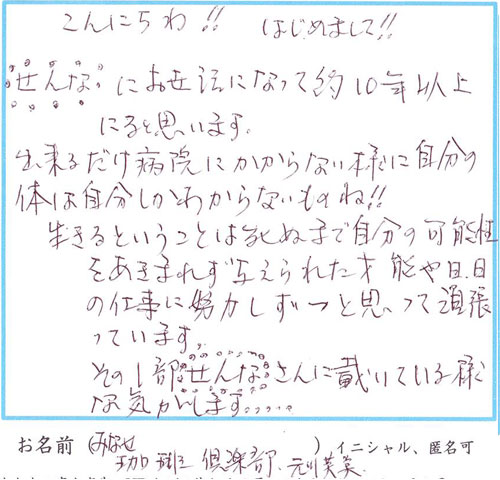 こんにちわ!! はじめまして!!
せんなにお世話になって約10年以上
になると思います。
出来るだけ病院にかからない様に自分の
体は自分しかわからないものね!!
生きるということは死ぬまで自分の可能性
をあきまれず与えられた才能や日、日
の仕事に努力しずーっと思って頑張
っています。
その1部せんなさんに戴いている様
な気がします.....
お名前(みなせ ) イニシャル、匿名可
珈琲倶楽部、